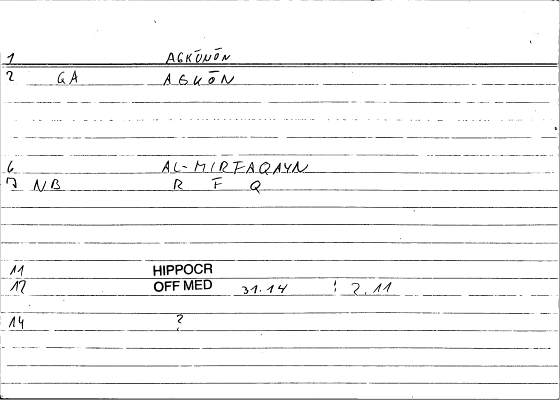 1 AGKŪNŌN
2 GA AGKŌN
6 AL-MIRFAQAYN
7 NB R F Q
11 HIPPOCR
12 OFF MED 31.14 : 2.11
14 ?